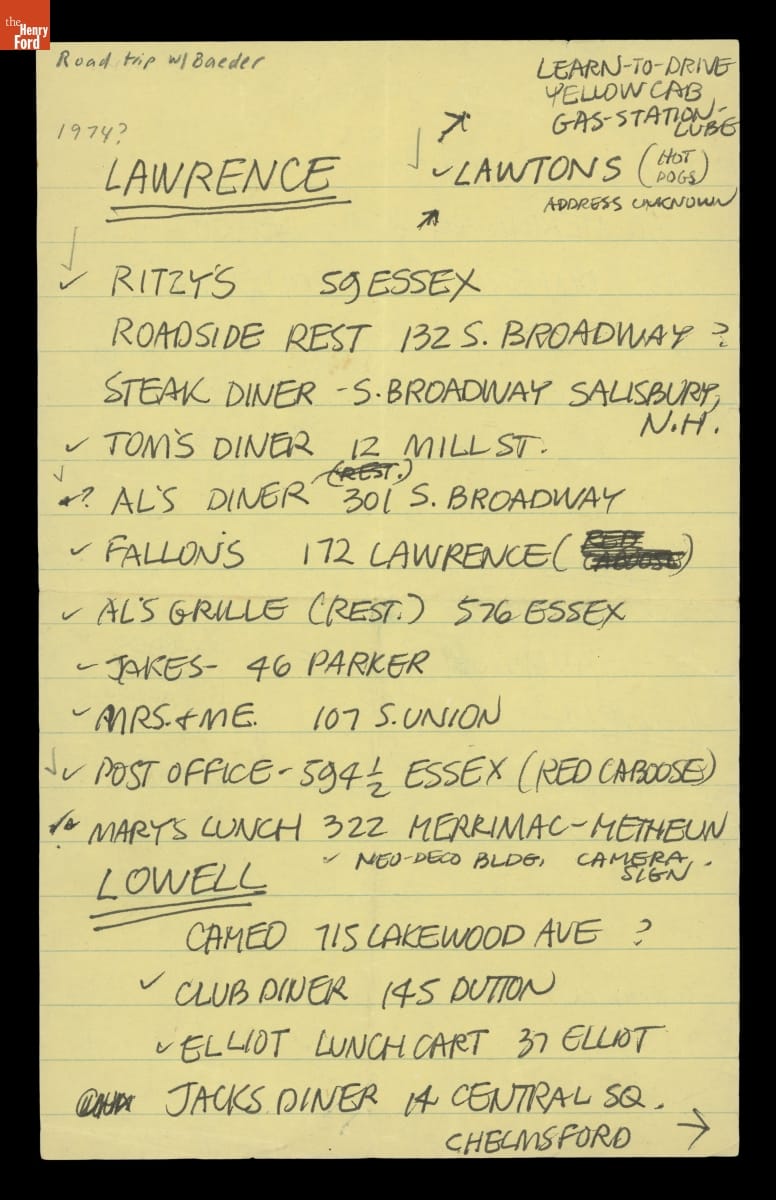 the
Henry
Ford
Road trip w/ Baeder
1974?
LEARN-TO-DRIVE
YELLOW CAB
GAS-STATION-
LUBE
LAWRENCE
✓LAWTONS (HOT DOGS)
ADDRESS UNKNOWN
✓ RITZY'S 59 ESSEX
ROADSIDE REST 132 S. BROADWAY ?
STEAK DINER - S. BROADWAY SALISBURY,
N.H.
✓ TOM'S DINER 12 MILL ST.
(REST.)
✓? AL'S DINER 301 S. BROADWAY
✓ FALLON'S 172 LAWRENCE (RED CABOOSE)
✓ AL'S GRILLE (REST.) 576 ESSEX
✓ JAKES- 46 PARKER
✓ MRS. & ME. 107 S. UNION
✓ POST OFFICE - 594 1/2 ESSEX (RED CABOOSE)
MARY'S LUNCH 322 MERRIMAC - METHEUN
✓ NEO-DECO BLDG, CAMERA SIGN.
LOWELL
CAMEO 715 LAKEWOOD AVE ?
✓ CLUB DINER 145 DUTTON
✓ ELLIOT LUNCH CART 37 ELLIOT
JACKS DINER 14 CENTRAL SQ.
CHELMSFORD →